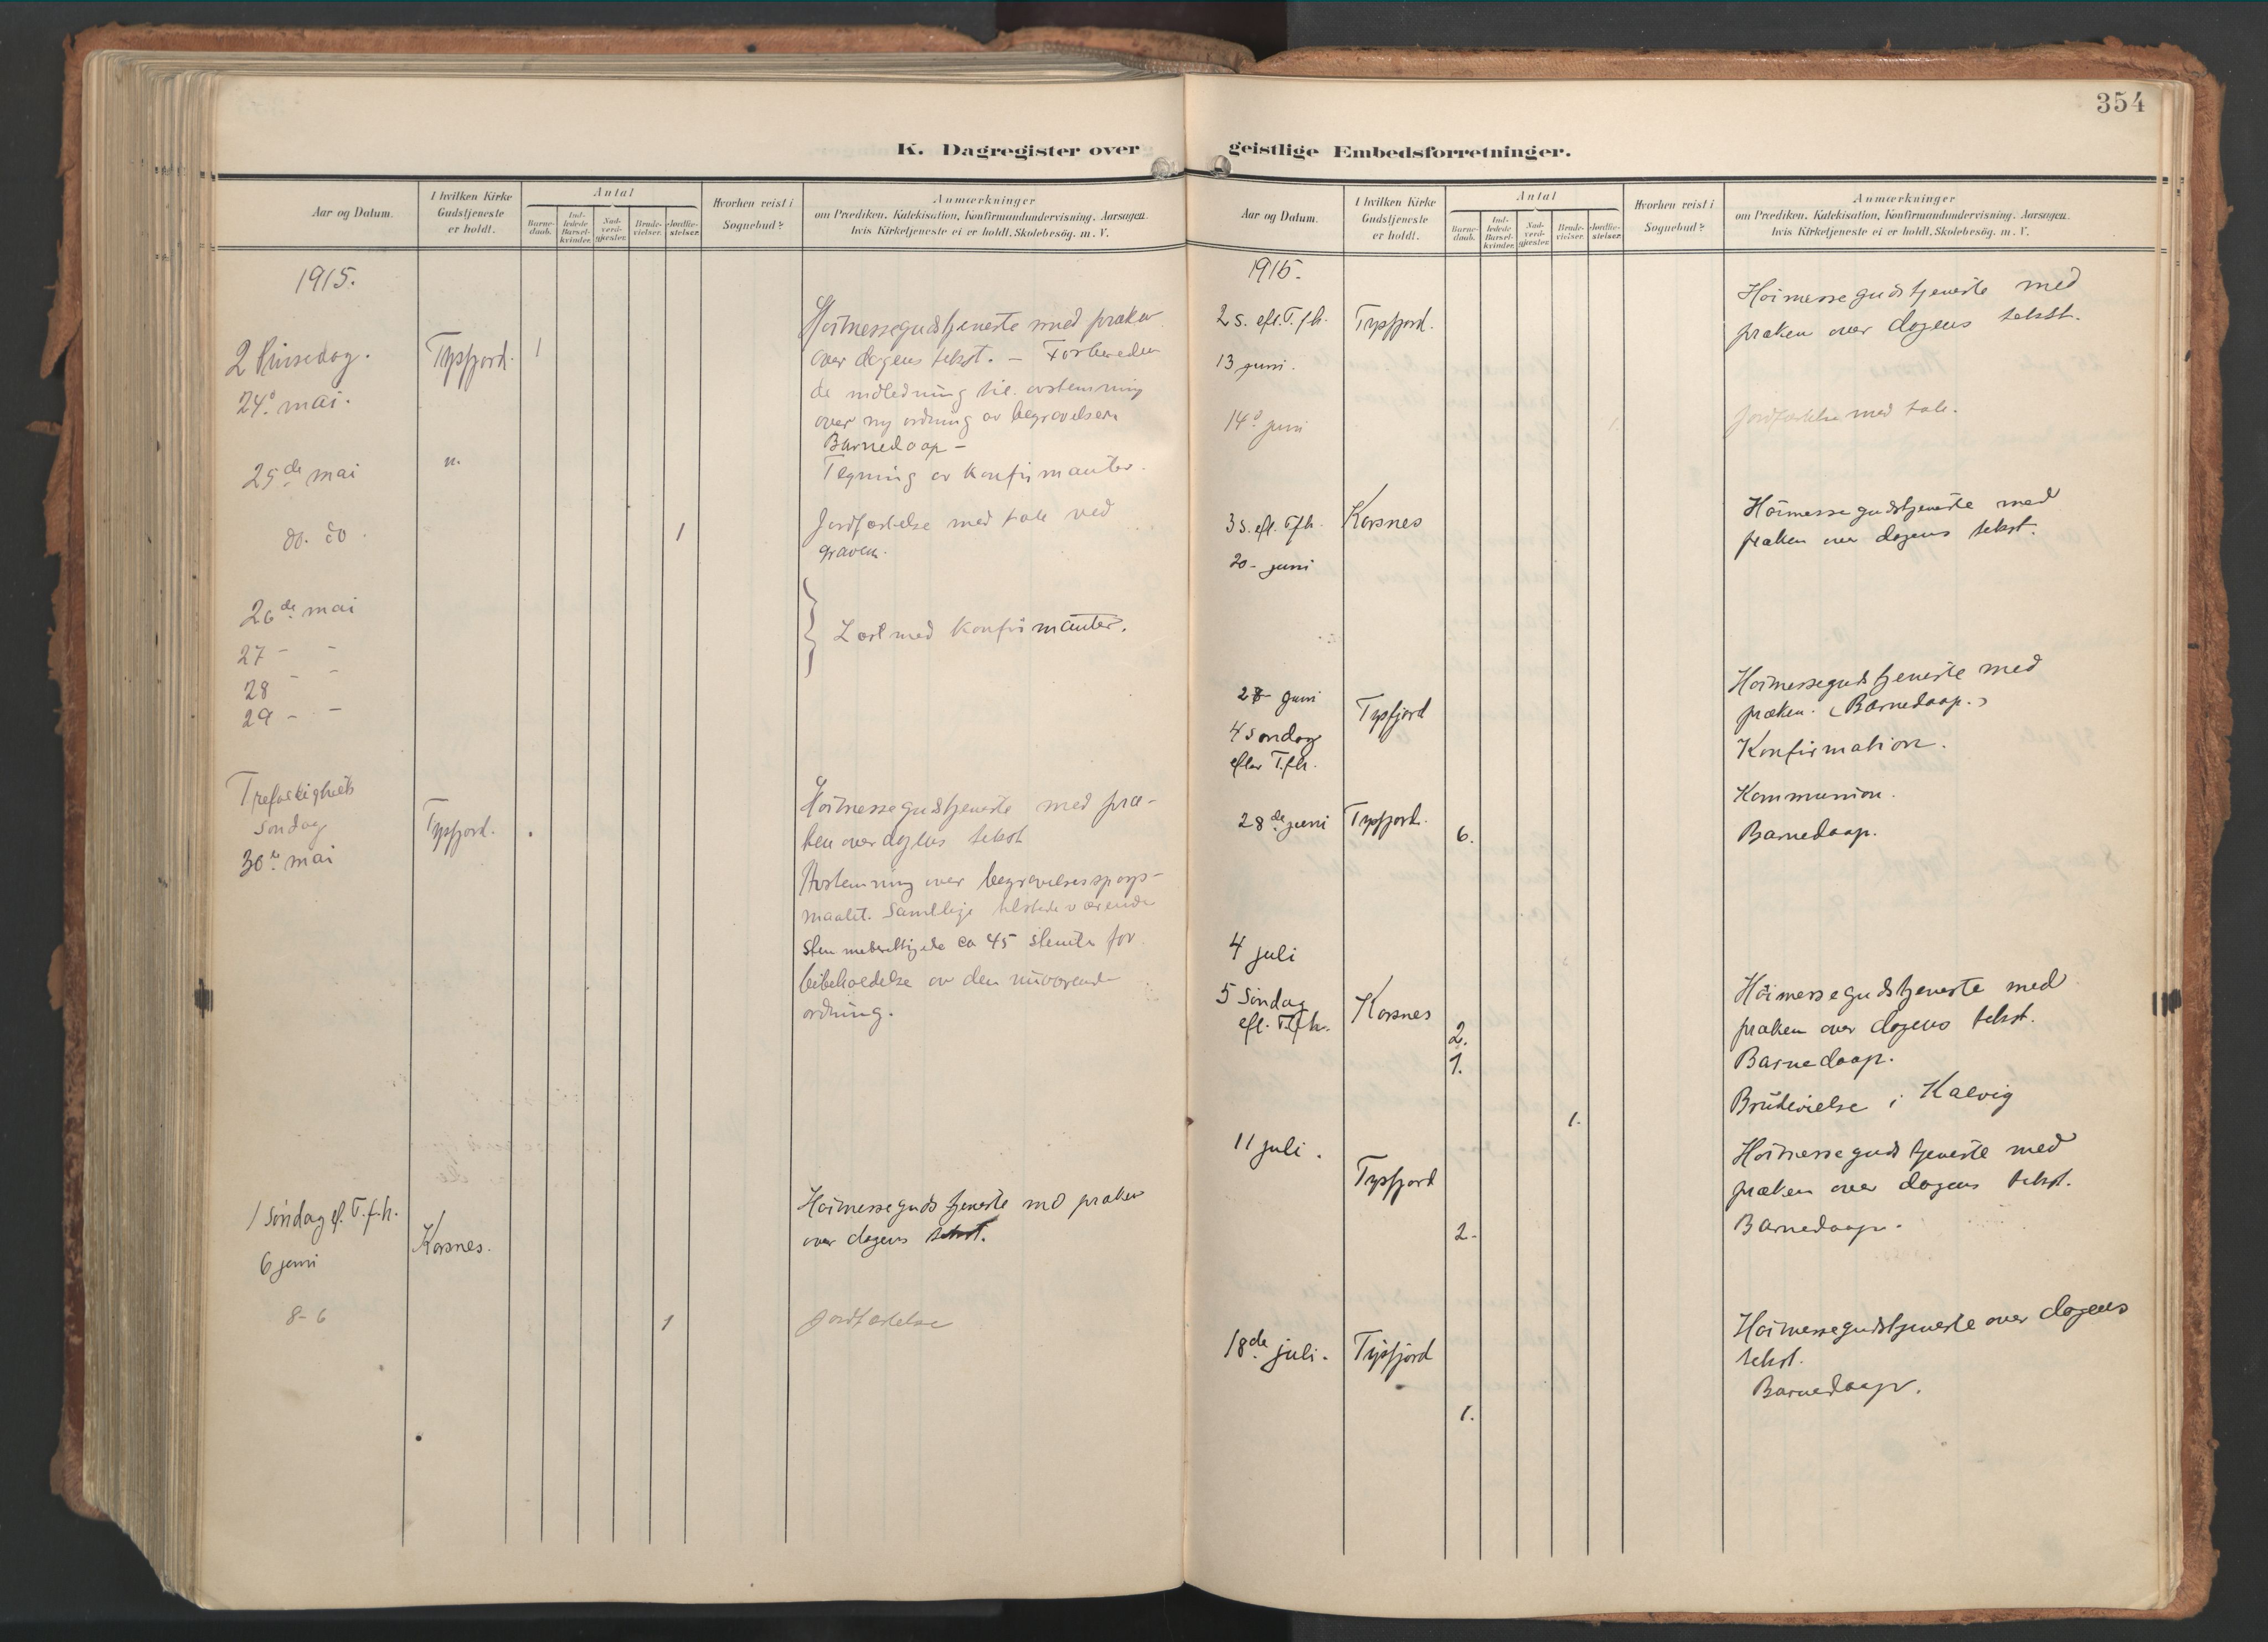 K. Dagregister over
Aar og Datum.
I hvilken Kirke Gudstjeneste er holdt.
Antal
Barnedaab.
Indledede Barselkvinder.
Nadverdgjester.
Brudevielser.
Jordfæstelser.
Hvorhen reist i Sognebud?
Anmærkninger
om Prædiken, Katekisation, Konfirmandundervisning, Aarsagen,
hvis Kirketjeneste ei er holdt, Skolebesøg. m. V.
1915.
2 Pinsedag. Tysfjord. 1
24de mai.
Høimessegudstjeneste med præken
over dagens tekst. — Forbereden
de indledning til avstemning
over ny ordning av begravelsern
Barnedaap –
25de mai " Tegning av konfirmanter.
do. do. 1 Jordfæstelse med tale ved
graven.
26de mai
27 - -
28 - -
29 - -
} Læst med konfirmanter.
Trefoldigheds
søndag Tysfjord.
30te mai
Høimessegudstjeneste med præ-
ken over dagens tekst
Avstemning over begravelsesspørs-
maalet. Samtlige tilstedeværende
stemmeberettigede ca 45 stemte for
bibeholdelse av den nuværende
ordning.
1 Søndag ef. T.f.h. Korsnes.
6 juni
Høimessegudstjeneste md præken
over dagens tekst.
8-6 1 Jordfæstelse
354
geistlige Embedsforretninger.
Aar og Datum.
I hvilken Kirke Gudstjeneste er holdt.
Antal
Barnedaab.
Indledede Barselkvinder.
Nadverdgjester.
Brudevielser.
Jordfæstelser.
Hvorhen reist i Sognebud?
Anmærkninger
om Prædiken, Katekisation, Konfirmandundervisning, Aarsagen,
hvis Kirketjeneste ei er holdt, Skolebesøg. m. V.
1915.
2 s. eft. T.f.h. Tysfjord.
13 juni.
Høimessegudstjeneste med
præken over dagens tekst.
14de juni 1. Jordfæstelse med tale.
3 s. eft. Tfh. Korsnes
20- juni
Høimessegudstjeneste med
præken over dagens tekst.
27- juni Tysfjord
4 søndag
efter T.f.h.
Høimessegudstjeneste med
præken. (Barnedaap.)
Konfirmation.
Kommunion.
28de juni Tysfjord. 6. Barnedaap.
4 juli
5 Søndag Korsnes
eft. T.f.h.
Høimessegudstjeneste med
præken over dagens tekst.
2.
1. Barnedaap.
1. Brudevielse i Kalvig
11 juli. Tysfjord
Høimessegudstjeneste med
præken over dagens tekst.
2- Barnedaap.
18de juli. Tysfjord
Høimessegudstjeneste over dagens
tekst.
1. Barnedaap.